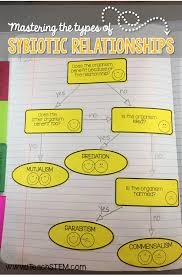 Mastering the types of
SYBIOTIC RELATIONSHIPS
Does the organism
benefit because of
the relationship?
yes
no
Does the other
organism
benefit too?
Is the organism
killed?
yes
no
yes
no
MUTUALISM
PREDATION
Is the organism
harmed?
yes
no
PARASITISM
COMMENSALISM
www.iTeachSTEM.com